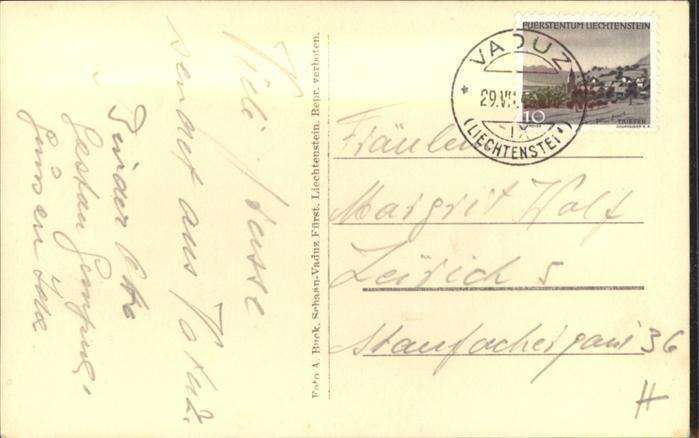 Viele Grüsse
sendet aus Vaduz.
Foto A. Buck, Schaan-Vaduz Fürst. Liechtenstein. Repr. verboten.
FUERSTENTUM LIECHTENSTEIN
10
TRIESEN
COURVOISIER S.A.
* VADUZ *
29.VII.
-IX
(LIECHTENSTEIN)
Fräulein
Margrit Wolf
Zürich 5
Stauffachergass 36
H